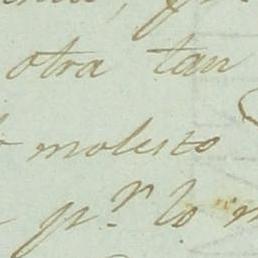 otra tan
molesto
p.r lo